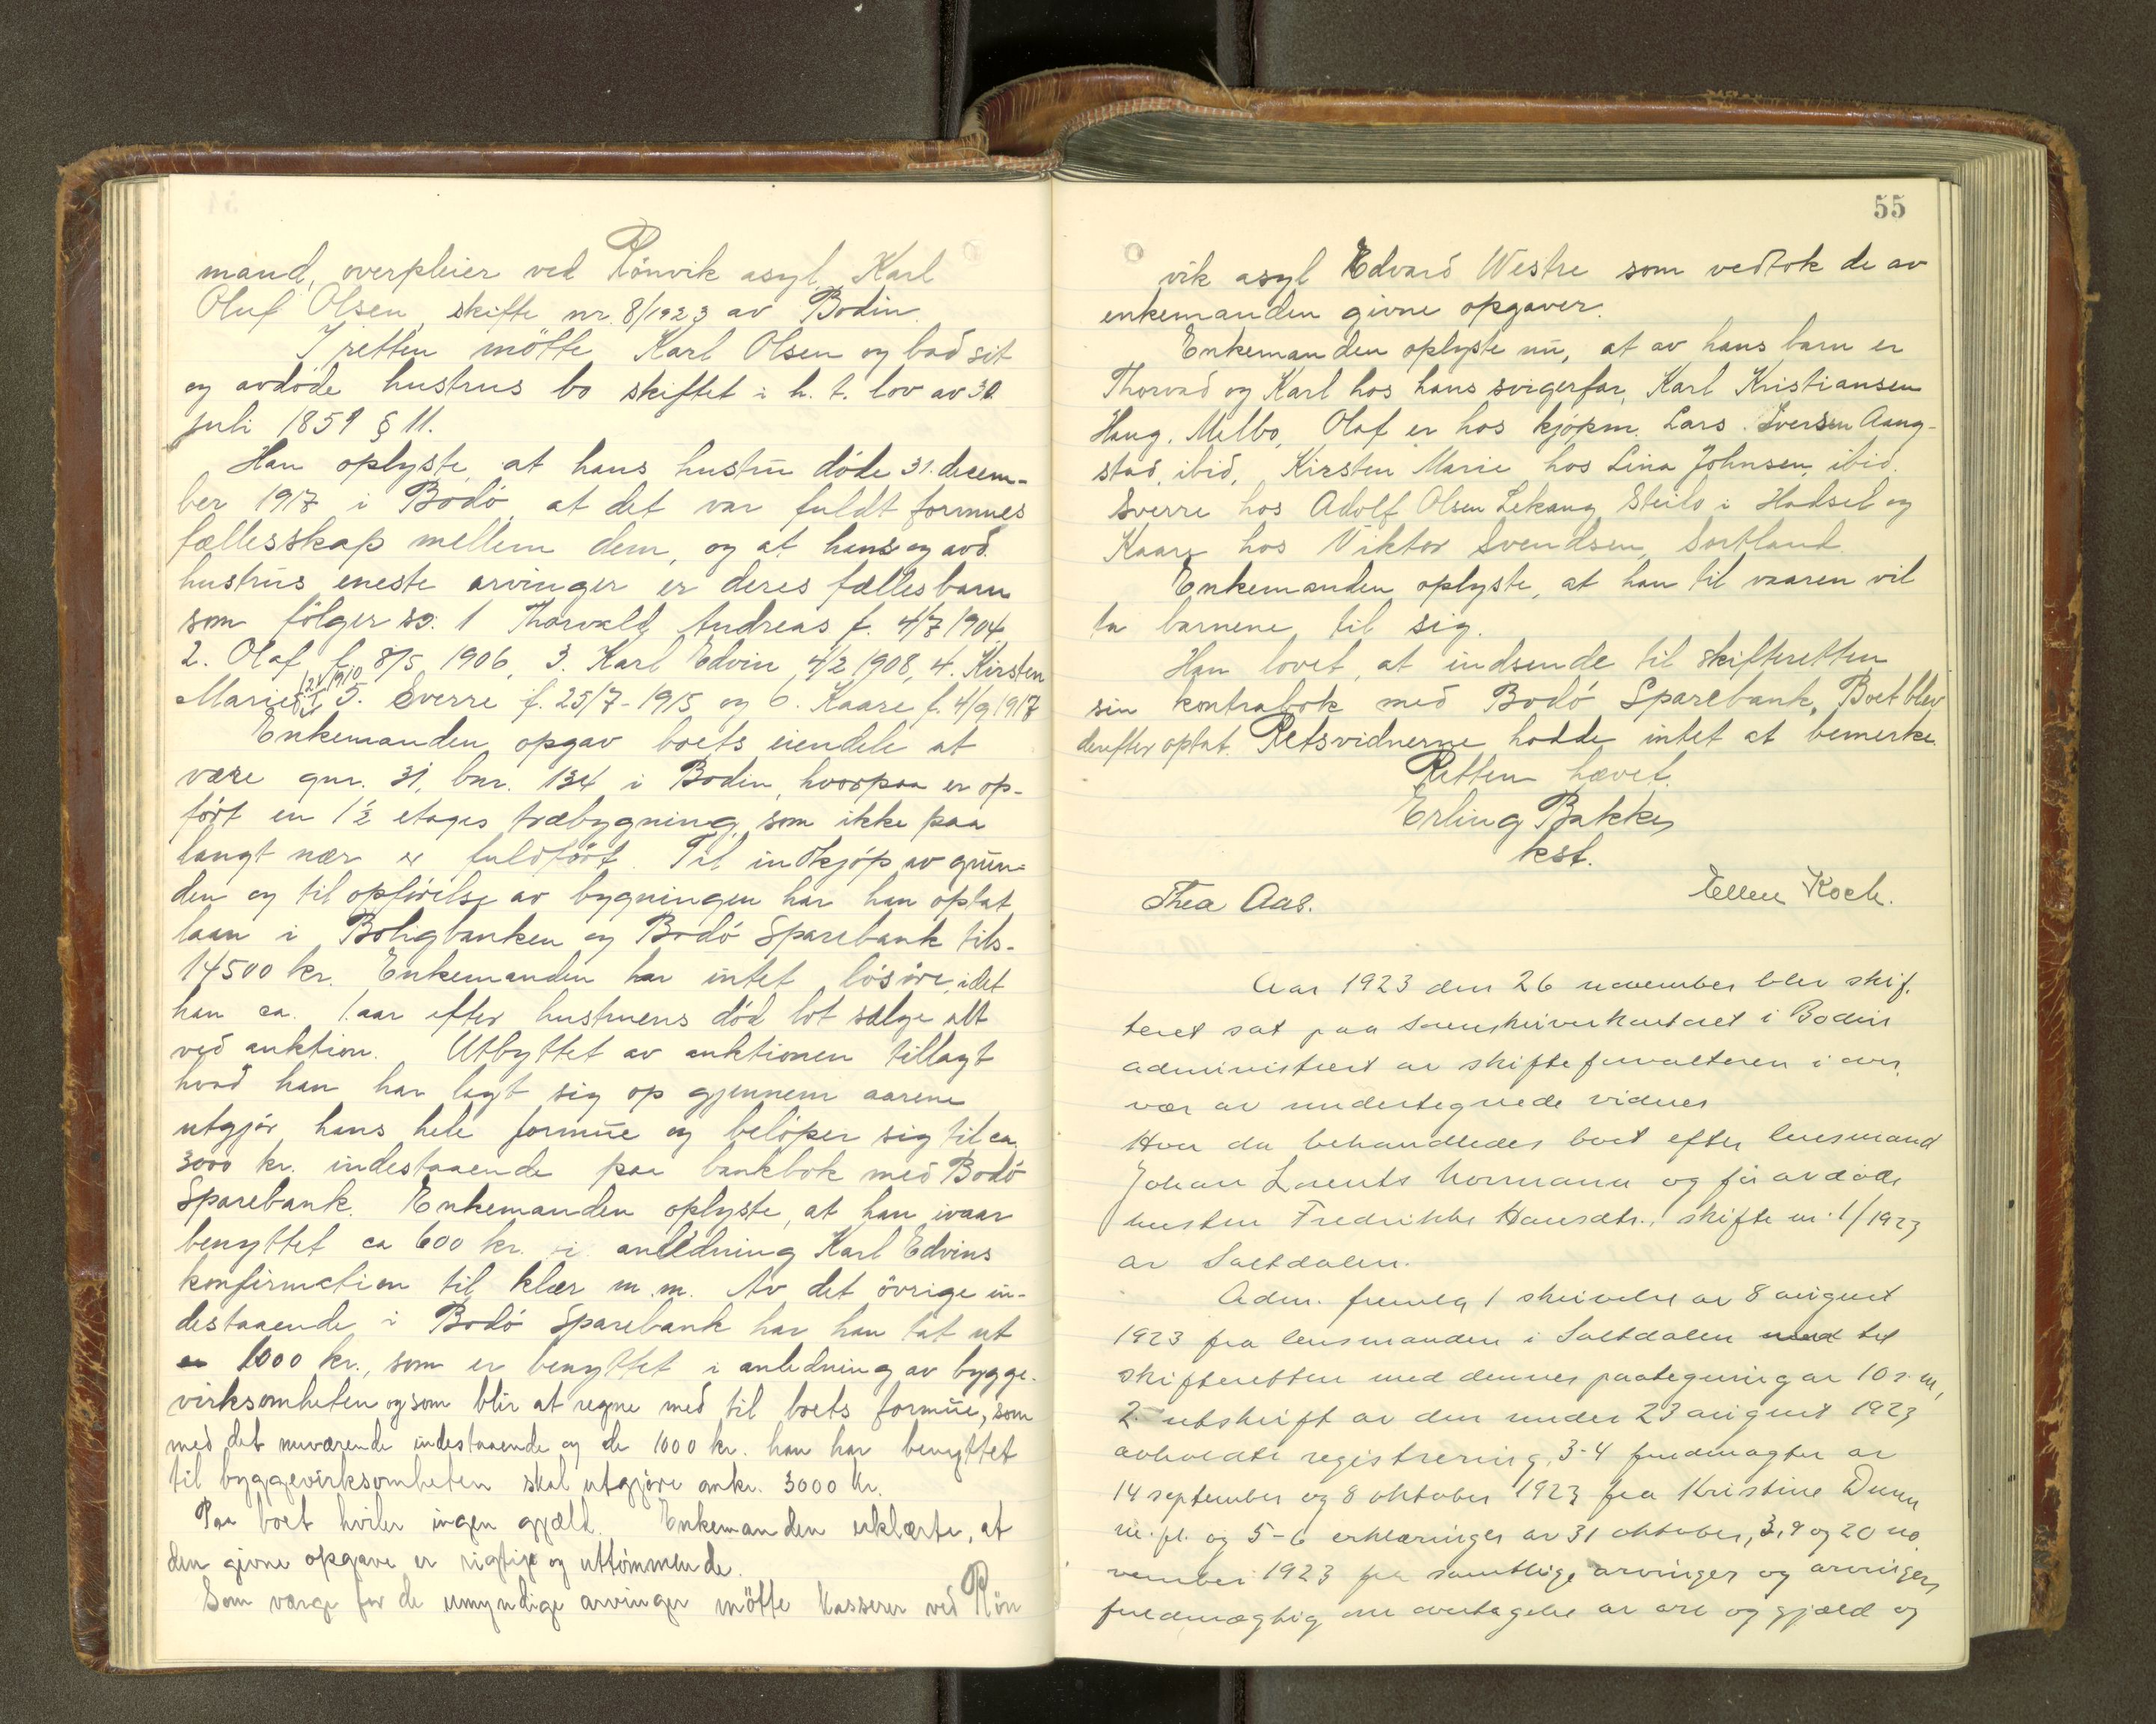 mand, overpleier ved Rönvik asyl, Karl
Oluf Olsen, skifte nr. 8/1923 av Bodin.
I retten mötte Karl Olsen og bad sit
og avdöde hustrus bo skiftet i h. t. lov av 30
juli 1851 § 11.
Han oplyste, at hans hustru döde 31. decem-
ber 1917 i Bodö, at det var fuldt formues
fællesskap mellem dem, og at hans og avd.
hustrus eneste arvinger er deres fælles barn
som fölger so: 1 Thorvald Andreas f. 4/7 1904
2. Olaf f. 8/5 1906, 3. Karl Edvin 4/2 1908, 4. Kirsten
Marie 5. Sverre f. 25/7-1915 og 6. Kaare f. 4/9 1917
Enkemanden opgav boets eiendele at
være gnr. 31, bnr. 134 i Bodin, hvorpaa er op-
fört en 1½ etages træbygning, som ikke paa
langt nær er fuldfört. Til indkjöp av grun-
den og til opförelse av bygningen har han optat
laan i Boligbanken og Bodö Sparebank tils.
14500 kr. Enkemanden har intet lösöre, idet
han ca. 1 aar efter hustruens död lot sælge alt
ved auktion. Utbyttet av auktionen tillagt
hvad han har lagt sig op gjennem aarene
utgjör hans hele formue og belöper sig til ca.
3000 kr. indestaaende paa bankbok med Bodö
Sparebank. Enkemanden oplyste, at han ivaar
benyttet ca 600 kr. i anledning Karl Edvins
konfirmation til klær m.m. Av det övrige in-
destaaende i Bodö Sparebank har han tat ut
1000 kr., som er benyttet i anledning av bygge-
virksomheten og som blir at regne med til boets formue, som
med det nuværende indestaaende og de 1000 kr. han har benyttet
til byggevirksomheten skal utgjöre omkr. 3000 kr.
Paa boet hviler ingen gjæld. Enkemanden erklærte, at
den givne opgave er rigtige og uttömmende.
Som værge for de umyndige arvinger mötte kasserer ved Rön
55
vik asyl Edvard Westre som vedtok de av
enkemanden givne opgaver.
Enkemanden oplyste nu, at av hans barn er
Thorvad og Karl hos hans svigerfar, Karl Kristiansen
Haug, Melbo, Olaf er hos kjöpm. Lars Iversen Aang-
stad, ibid, Kirsten Marie hos Lina Johnsen, ibid.
Sverre hos Adolf Olsen Lekang Steilo i Hadsel og
Kaare hos Viktor Svendsen, Sortland.
Enkemanden oplyste, at han til vaaren vil
ta barnene til sig.
Han lovet, at indsende til skifteretten
sin kontrabok med Bodö Sparebank. Boet blev
derefter optat. Retsvidnerne hadde intet at bemerke.
Retten hævet.
Erling Bakke
kst.
Thea Aas. Ellen Koch.
Aar 1923 den 26 november blev skif-
teret sat paa sorenskriverkontoret i Bodin
administrert av skifteforvalteren i over-
vær av undertegnede vidner
Hvor da behandledes boet efter lensmand
Johan Lorents Normann og før avdøde
hustru Fredrikke Hansdtr., skifte nr. 1/1923
av Saltdalen.
Adm. fremla 1 skrivelse av 8 august
1923 fra lensmanden i Saltdalen til
skifteretten med dennes paategning av 10 s. m,
2. utskrift av den under 23 august 1923
avholdte registrering, 3-4 fuldmagter av
14 september og 8 oktober 1923 fra Kristine
m. fl. og 5-6 erklæringer av 31 oktober, 3, 9 og 20 no-
vember 1923 fra samtlige arvinger og arvingers
fuldmægtig om overtagelse av arv og gjæld og